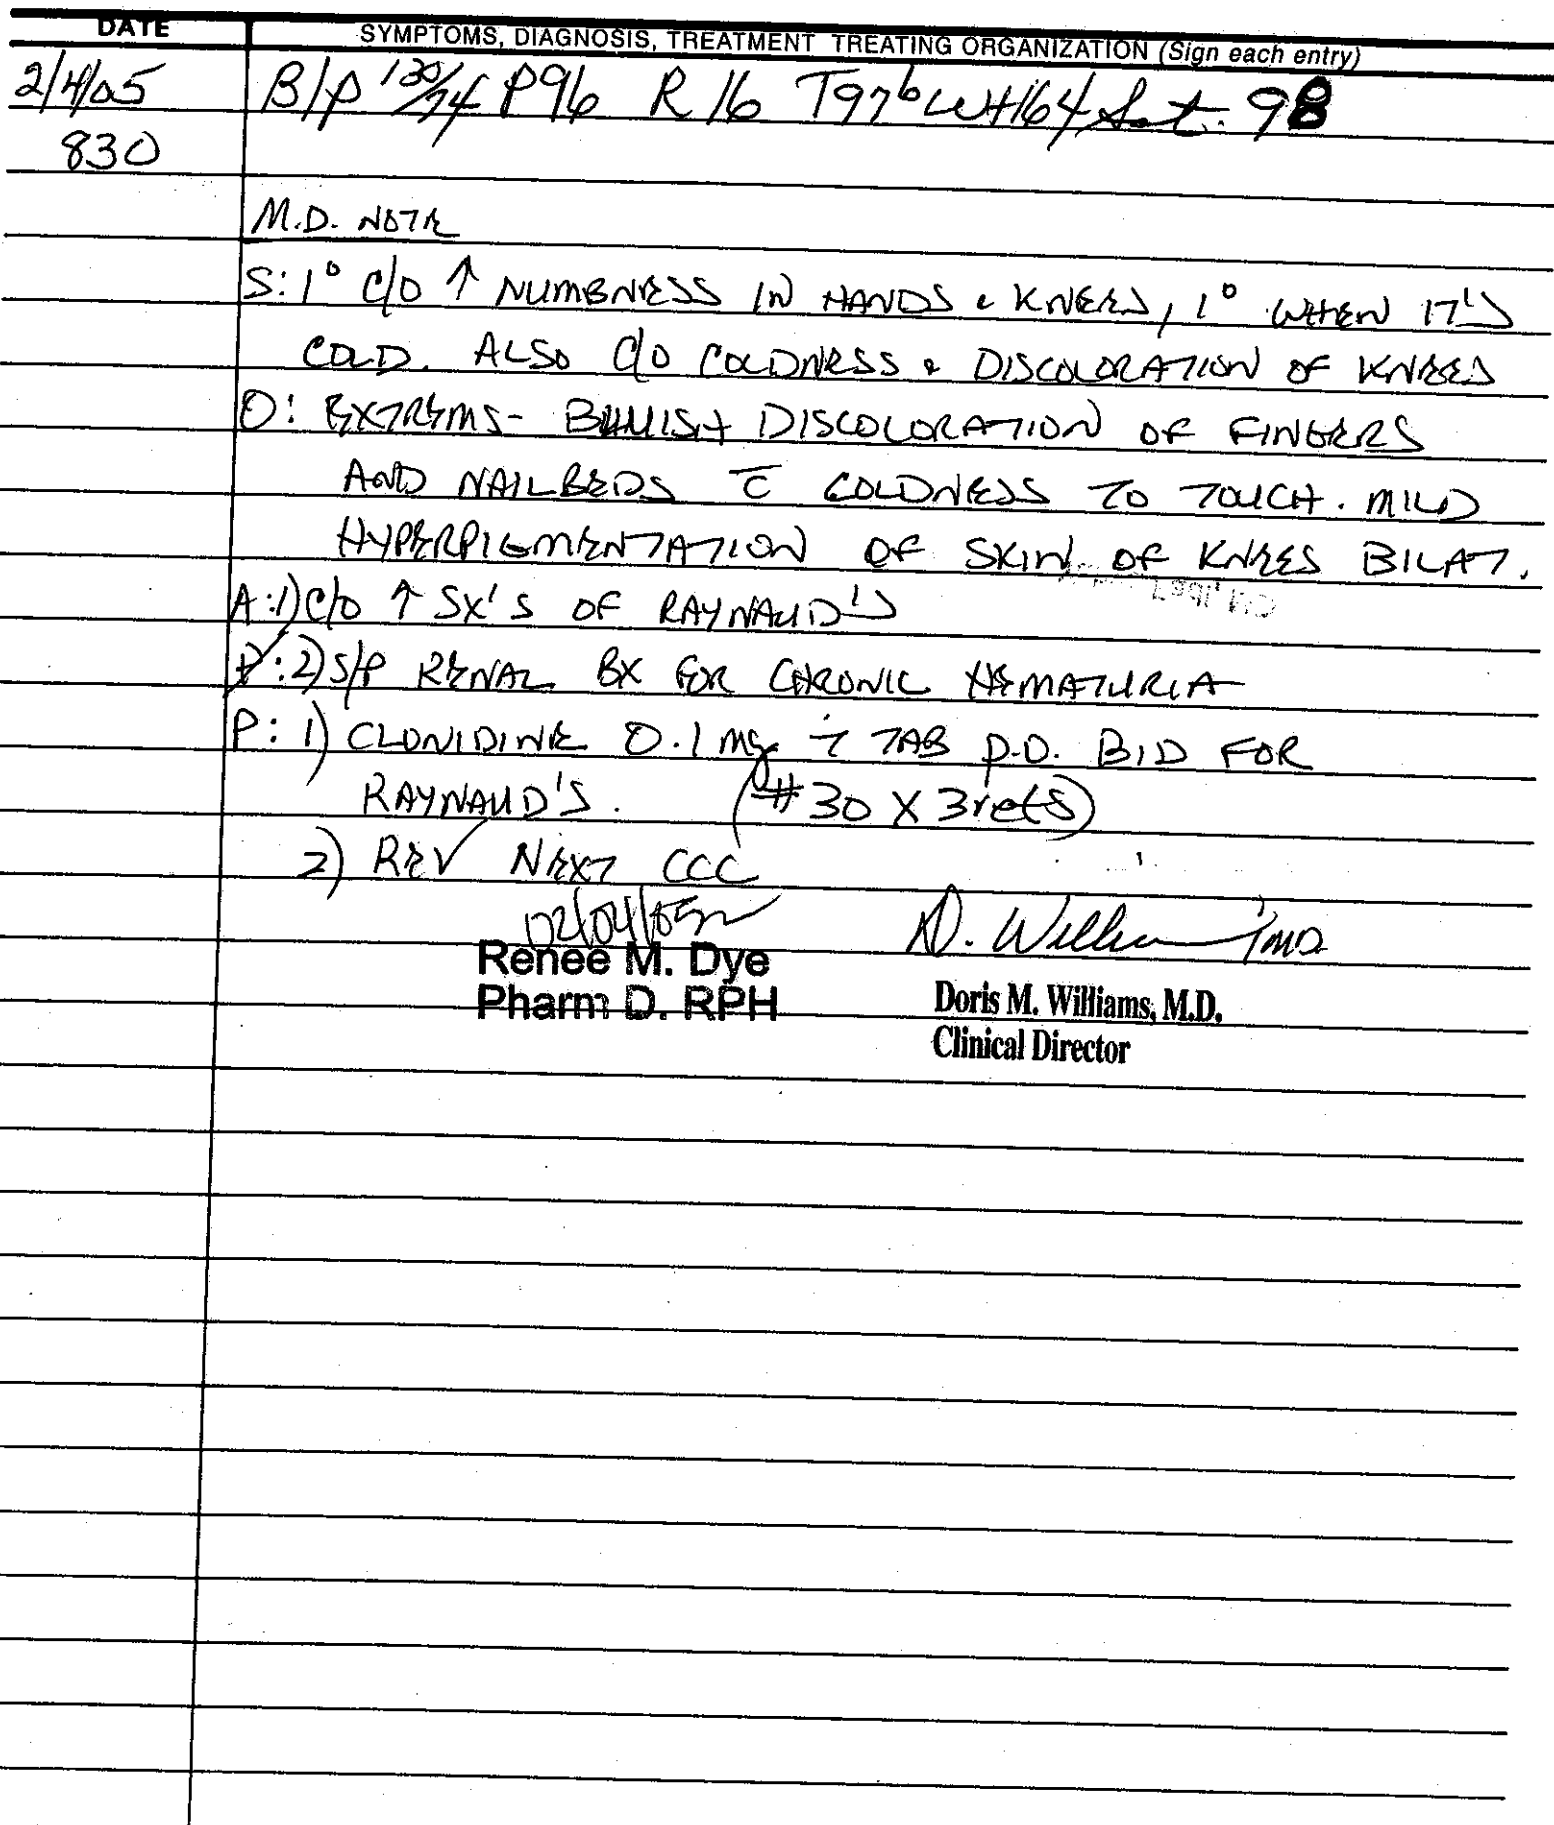 DATE SYMPTOMS, DIAGNOSIS, TREATMENT TREATING ORGANIZATION (Sign each entry)
2/4/05 B/P 130/74 P96 R 16 T97⁶ Wt 164 Sat. 98
830
M.D. NOTE
S: 1° C/O ↑ NUMBNESS IN HANDS & KNEES, 1° WHEN IT'S
COLD. ALSO C/O COLDNESS & DISCOLORATION OF KNEES
O: EXTREMS - BLUISH DISCOLORATION OF FINGERS
AND NAILBEDS c̄ COLDNESS TO TOUCH. MILD
HYPERPIGMENTATION OF SKIN OF KNEES BILAT.
A: 1) C/O ↑ SX'S OF RAYNAUD'S
P: 2) S/P RENAL BX FOR CHRONIC HEMATURIA
P: 1) CLONIDINE 0.1 mg i TAB P.O. BID FOR
RAYNAUD'S. (#30 X 3 refs)
2) REV NEXT CCC
02/04/05
Renee M. Dye
Pharm D. RPH
D. Williams MD
Doris M. Williams, M.D.
Clinical Director